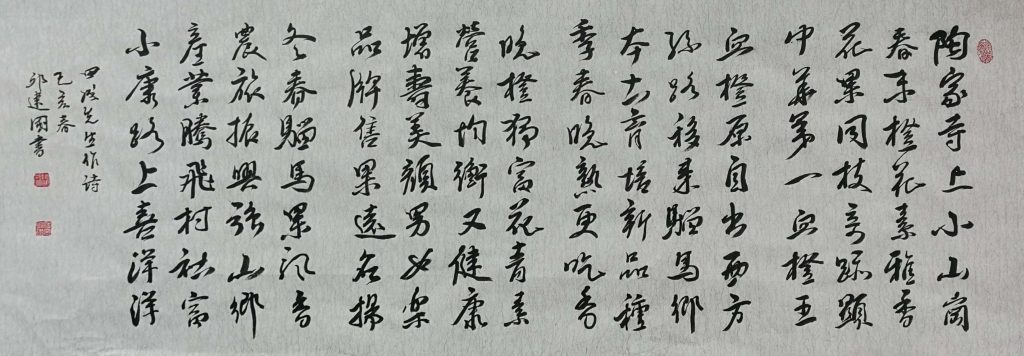 陶家寺上小山岗
春来橙花素雅香
花果同枝奇迹显
中华第一血橙王
血橙原自出西方
丝路移来驷马乡
本土育培新品种
季春晚熟更吃香
晚橙独富花青素
营养均衡又健康
增寿美颜男女乐
品牌售果远名扬
冬春驷马果飘香
农旅振兴强山乡
产业腾飞村社富
小康路上喜洋洋
先生作诗
己亥春
邓建国书